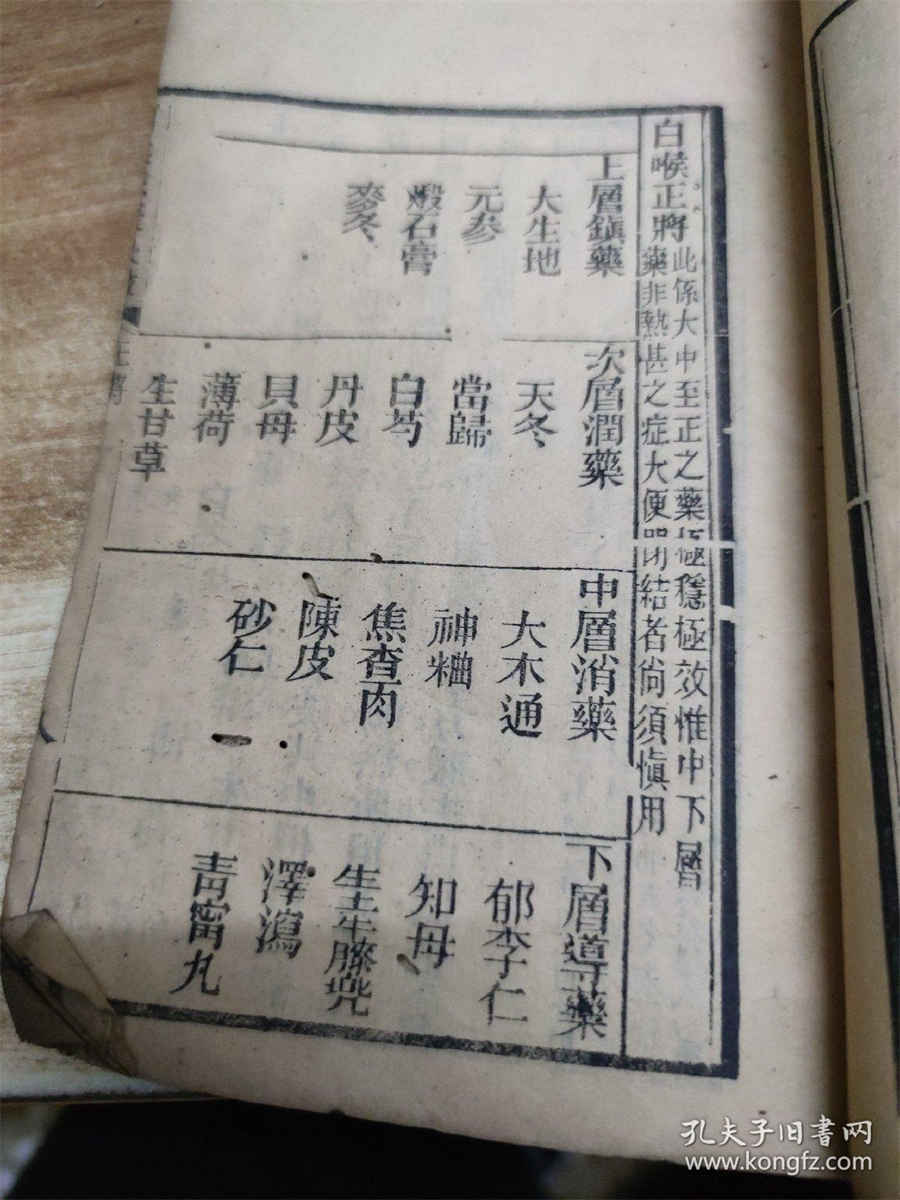 白喉正將此係大中至正之藥極穩極效惟中下層
藥非熱甚之症大便閉結者尙須愼用
上層鎭藥
大生地
元參
煅石膏
麥冬
次層潤藥
天冬
當歸
白芍
丹皮
貝母
薄荷
生甘草
中層消藥
大木通
神粬
焦查肉
陳皮
砂仁
下層導藥
郁李仁
知母
生土牛膝兠
澤瀉
靑甯丸
孔夫子旧书网
www.kongfz.com